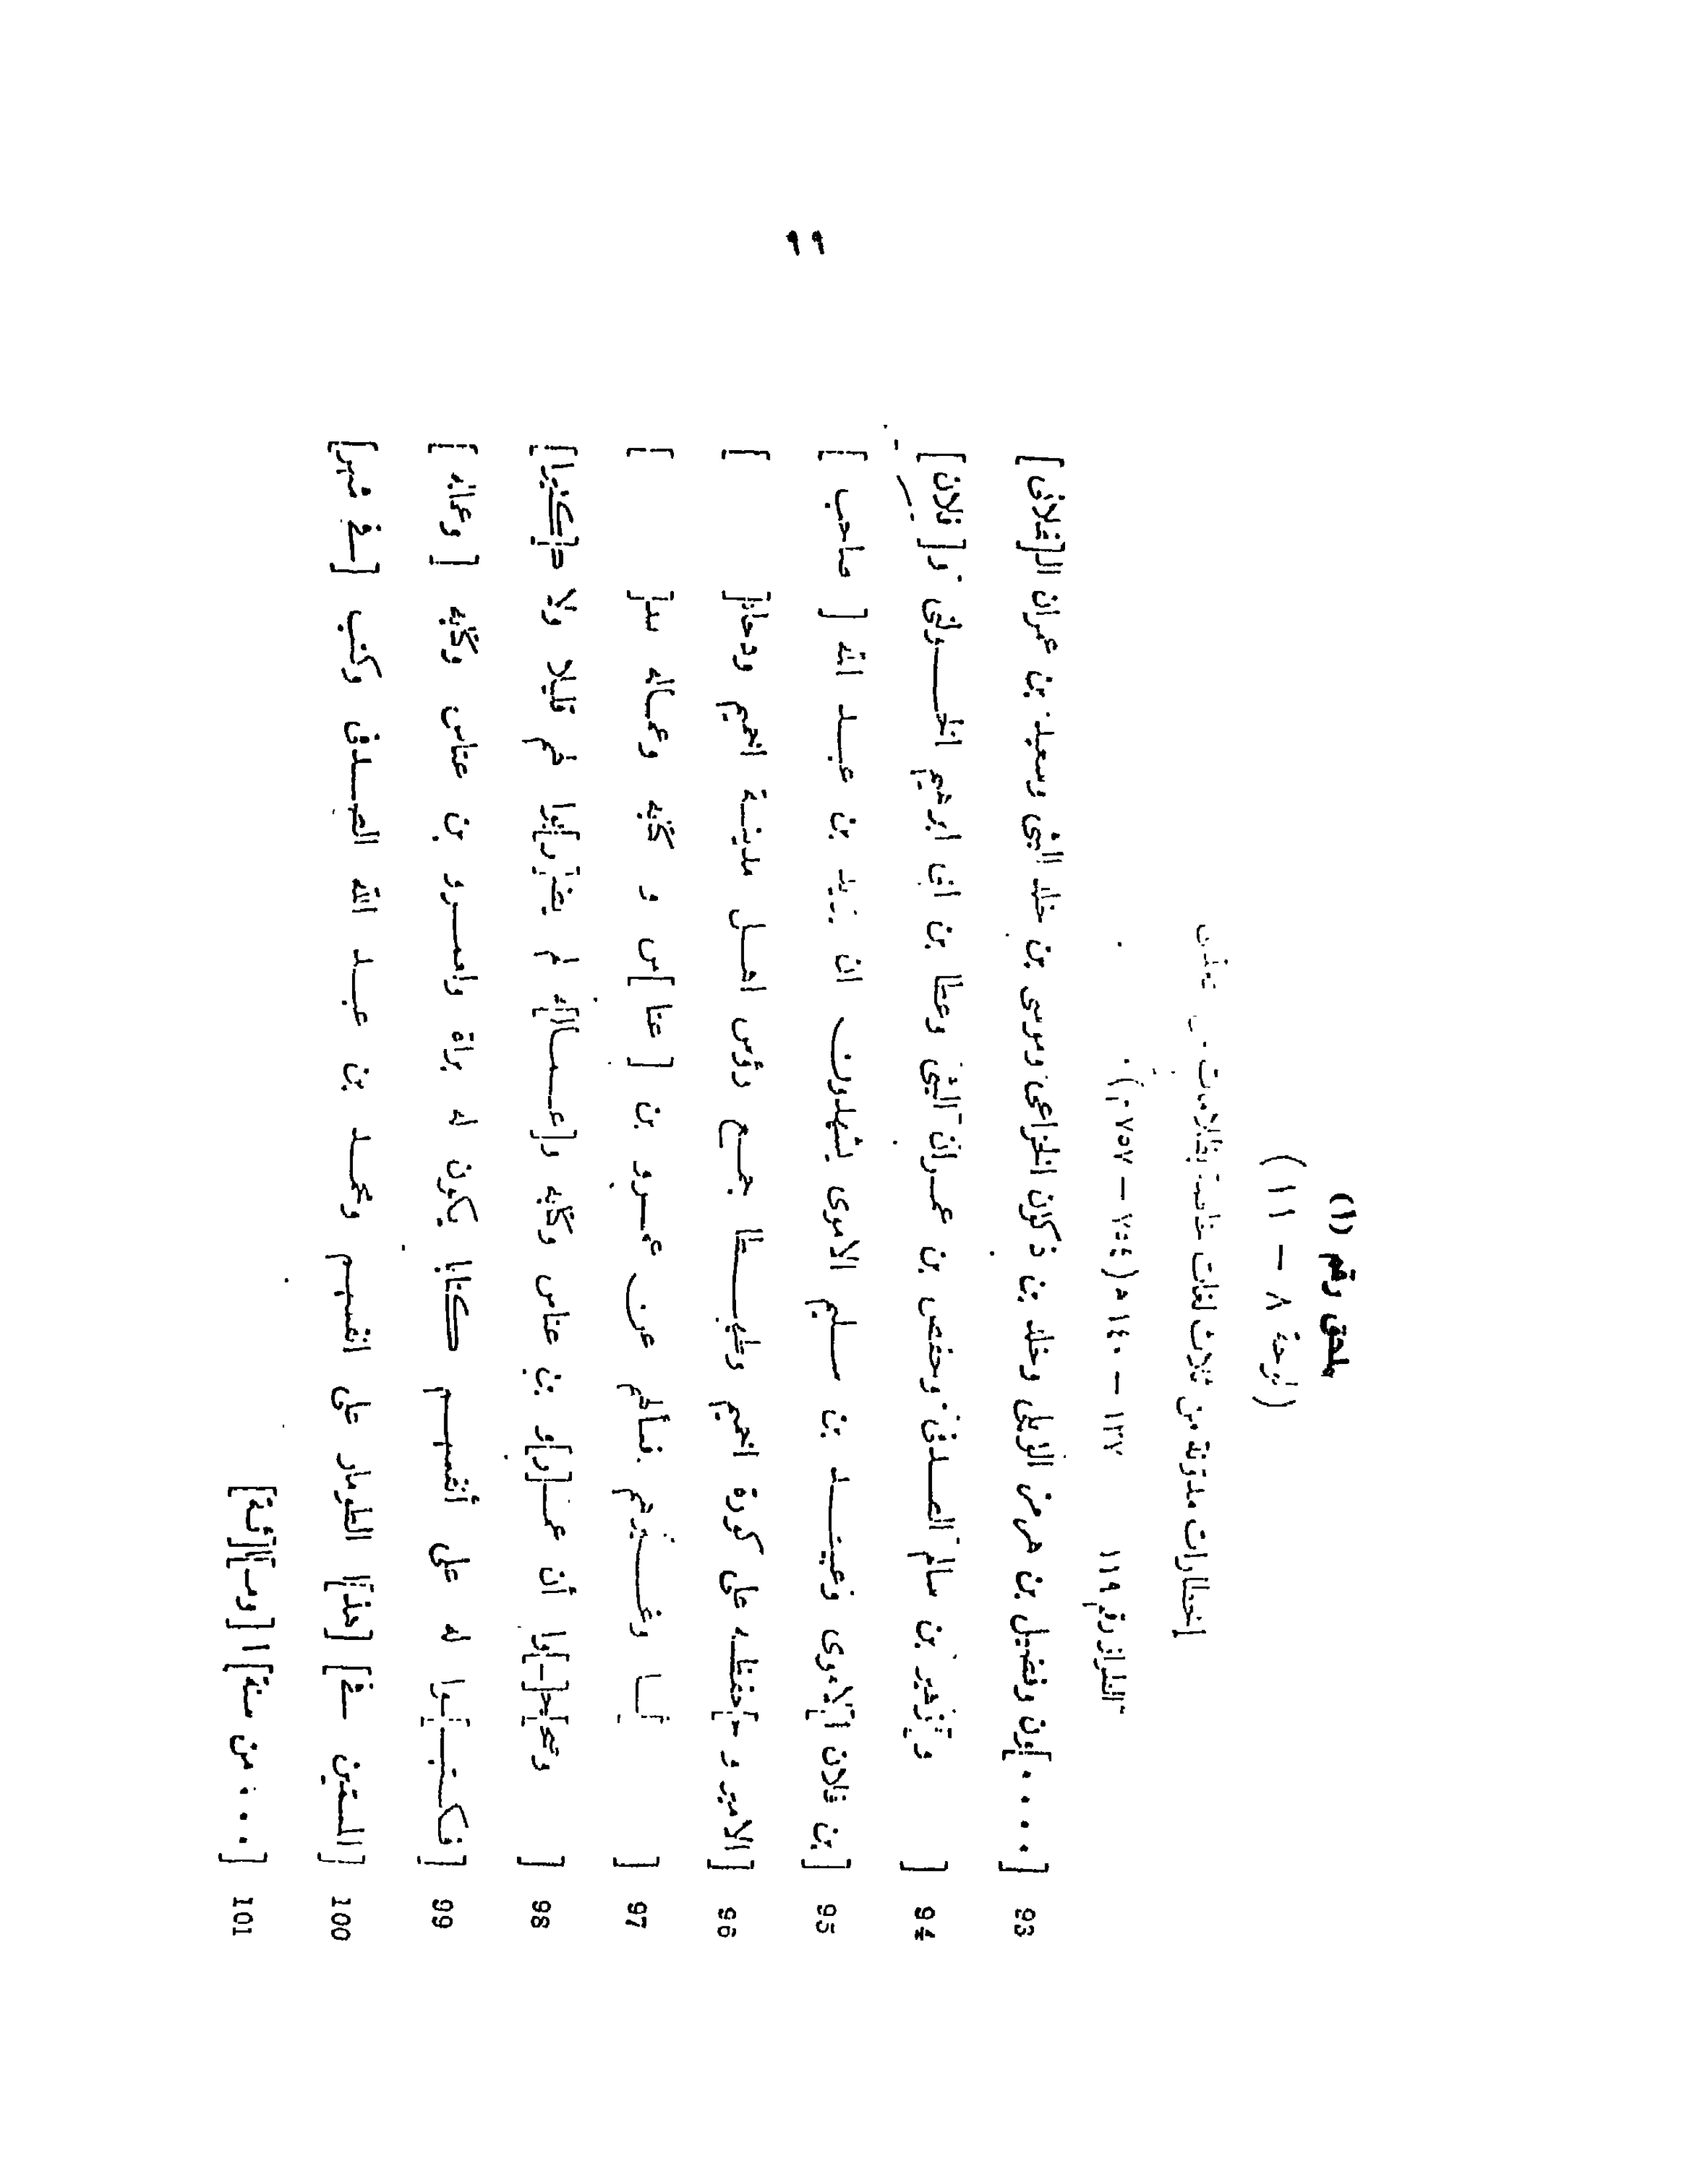 ٩٩
ملحق رقم (١)
(لوحة ٨ – ١١)
إخطارات مدونة من ثلاث لغات خاصة بظلامات
الطراز رقم ١١٩ ١٣٧ – ١٤٠ ه (٧٥٤ – ٧٥٧ م).
93 [....]ون وفضيل بن هرمز الويلى وخلد بن ذكوان الخزاعى وموسى بن خلد اليثى وسعيد بن عمران ال[فلانى]
94 [ ] وزهير بن سالم الصـدفى وحفص بن عمـران اليثى وعطا بن ابى ابرهيم الخـولنى و[فلان]
95 [بن فلان ا]لاموى وعبيـد بن سـليم الاموى يشهدون ان يزيد بن عبـد الله [صاحب ]
96 [الامير و ح]فظله على كورة اخميم وطهـطا جمـع رؤس اهـل مدينـة اخميم ودعا[ ]
97 [ ] وغـيرهم فسألهم عن عمـرو بن [عتا]س و كتبه وعماله س[ ]
98 [ ] أن عمـ[ر]و بن عتاس وكتبه و[عـمـا]له لم قليلا ولا [كثيرا]
99 [فكـتبـ]وا له على أنفسهم كتابا يكون له براة ولعمـرو بن عتاس وكتبه [وعماله ]
100 الطومار على انفسهم ومحمـد بن عبـد الله الصـدفى وكتب [فى شهر]
101 [... من سنة] ا[ومـ]ا[ئة]